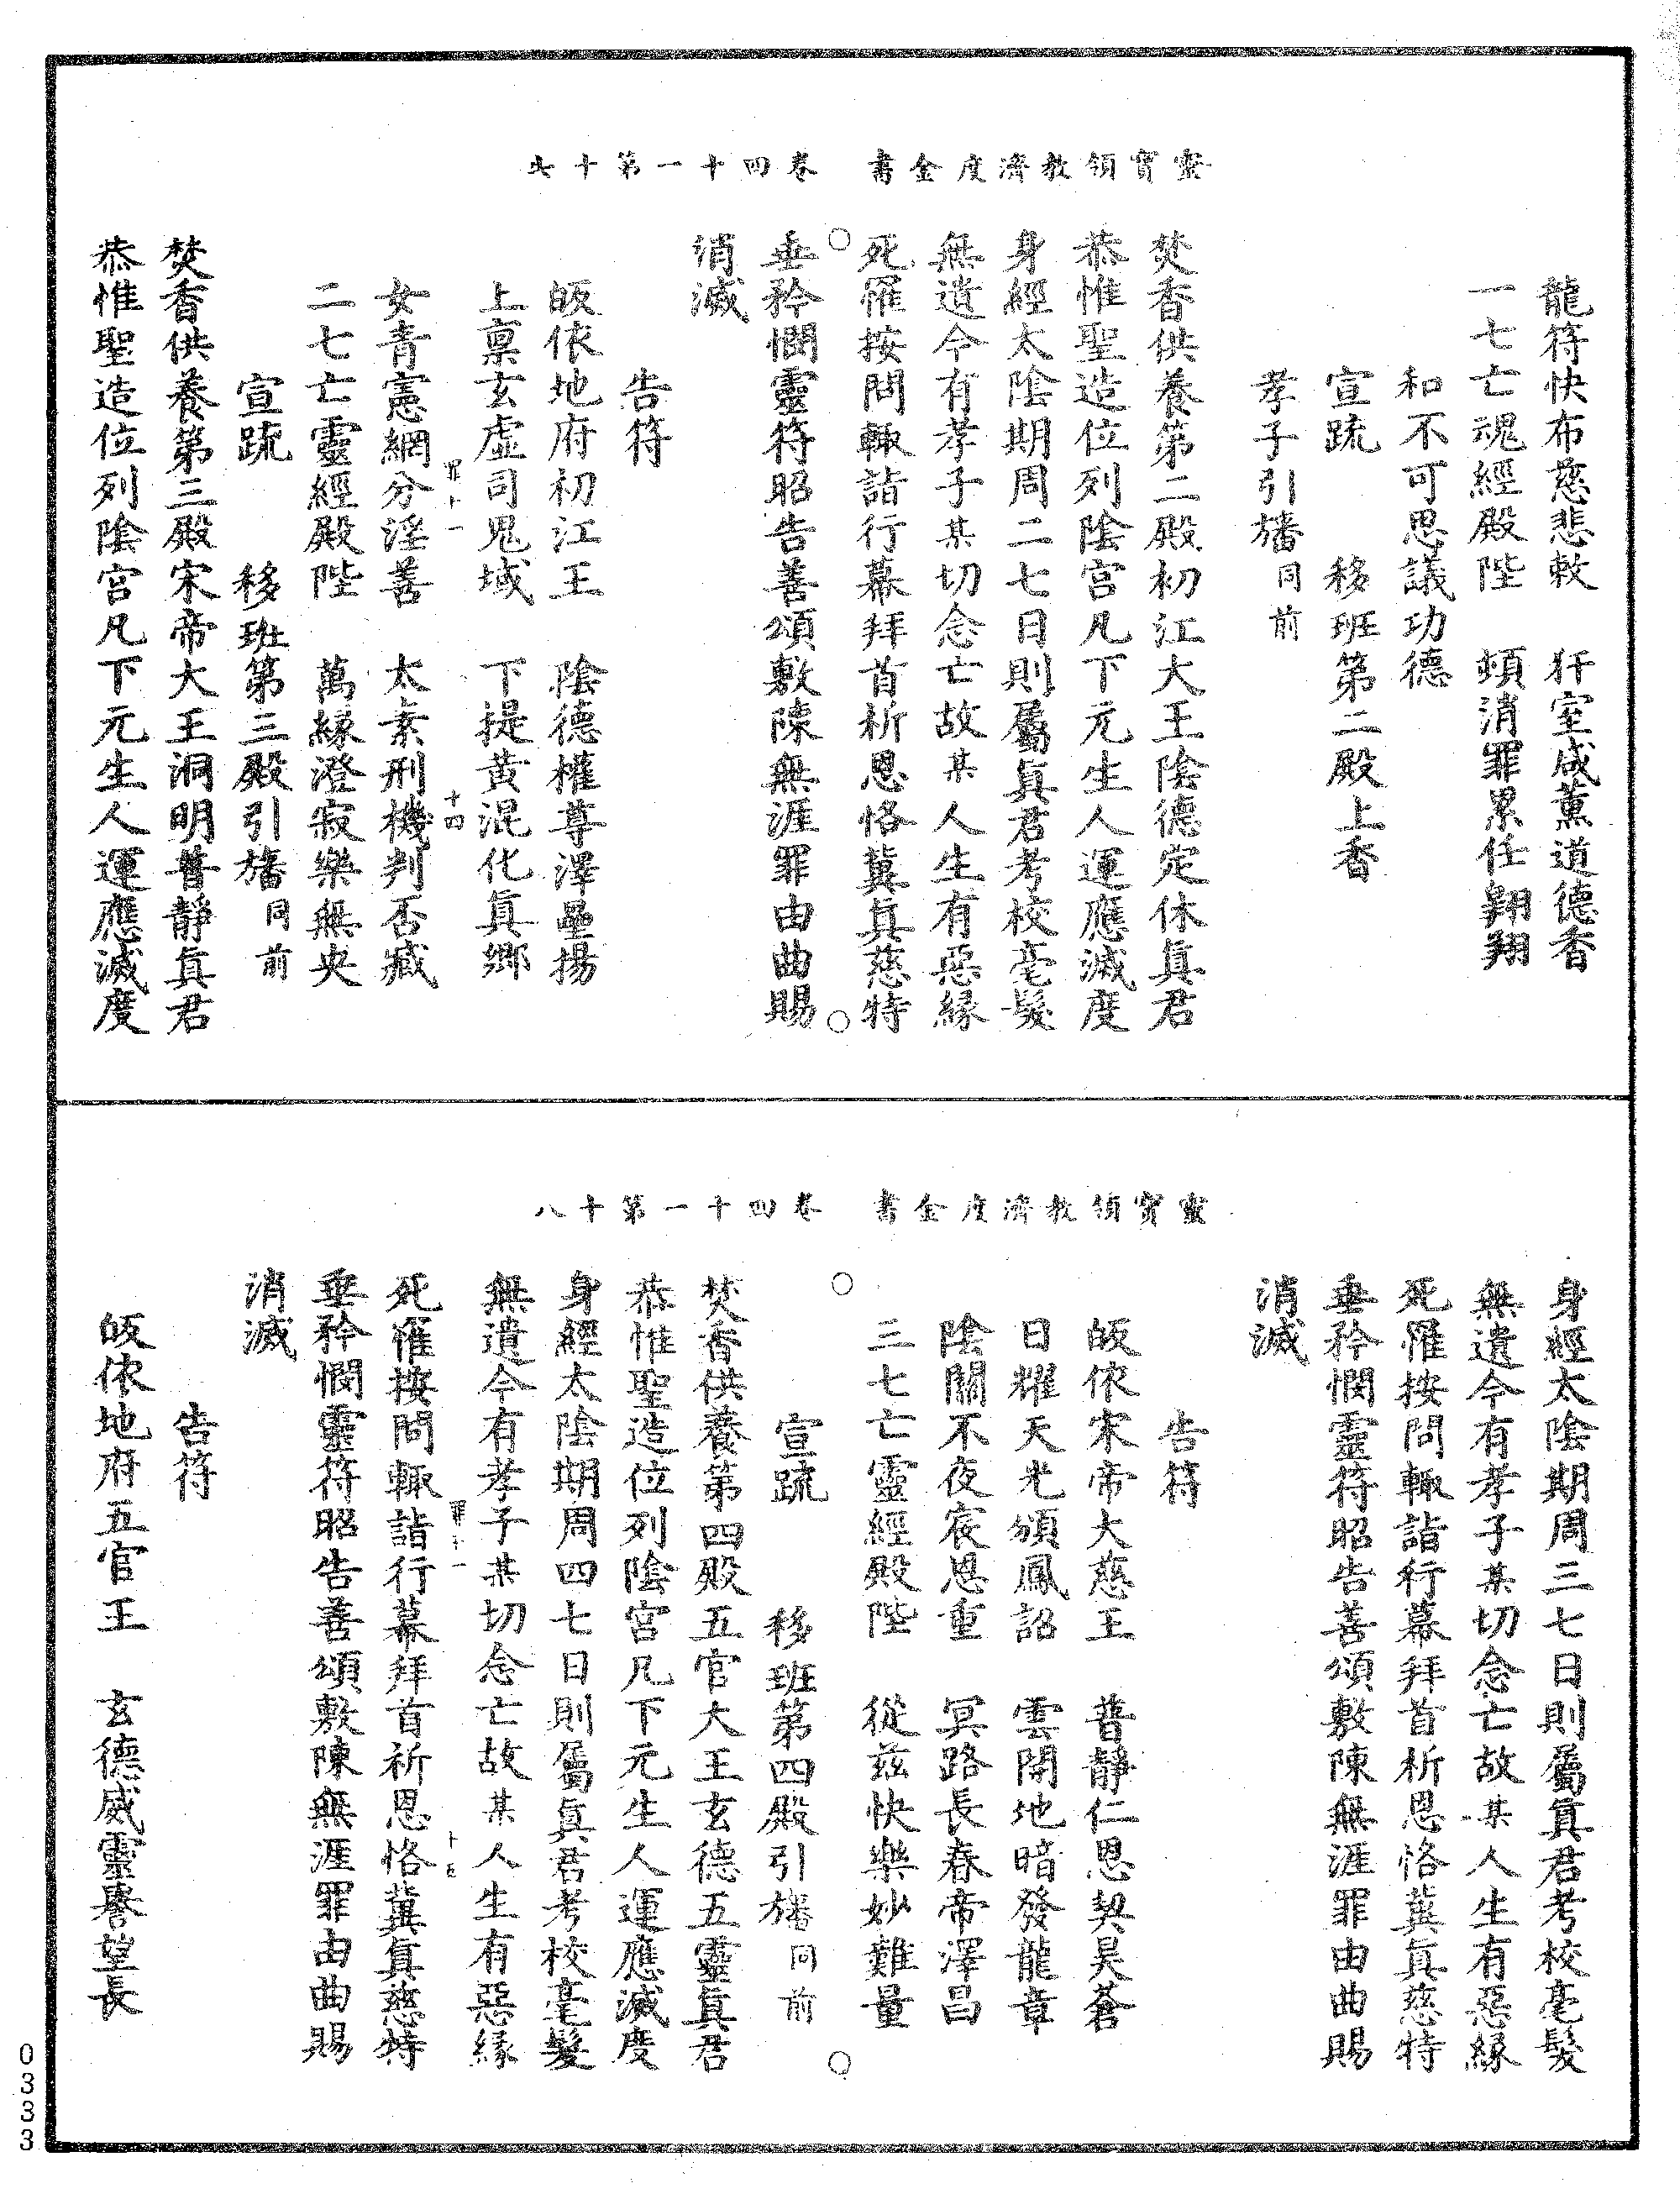 靈寶領教濟度金書　卷四十一第十七
龍符快布慈悲敕　犴室咸薰道德香
一七亡魂經殿陛　頓消罪累任翱翔
和不可思議功德
宣疏　移班第二殿上香
孝子引旛同前
焚香供養第二殿初江大王陰德定休真君
恭惟聖造位列陰宮凡下元生人運應滅度
身經太陰期周二七日則屬真君考校毫髮
無遺今有孝子某切念亡故某人生有惡緣
死罹按問輙詣行幕拜首祈恩恪冀真慈特
垂矜憫靈符昭告善頌敷陳無涯罪由曲賜
消滅
告符
皈依地府初江王　陰德權尊澤壘揚
上稟玄虛司鬼域　下提黃混化真鄉
女青憲網分淫善　太素刑機判否臧
罪十一　十四
二七亡靈經殿陛　萬緣澄寂樂無央
宣疏　移班第三殿引旛同前
焚香供養第三殿宋帝大王洞明普靜真君
恭惟聖造位列陰宮凡下元生人運應滅度
靈寶領教濟度金書　卷四十一第十八
身經太陰期周三七日則屬真君考校毫髮
無遺今有孝子某切念亡故某人生有惡緣
死罹按問輙詣行幕拜首祈恩恪冀真慈特
垂矜憫靈符昭告善頌敷陳無涯罪由曲賜
消滅
告符
皈依宋帝大慈王　普靜仁恩契昊蒼
日耀天光頒鳳詔　雲開地暗發龍章
陰關不夜宸恩重　冥路長春帝澤昌
三七亡靈經殿陛　從茲快樂妙難量
宣疏　移班第四殿引旛同前
焚香供養第四殿五官大王玄德五靈真君
恭惟聖造位列陰宮凡下元生人運應滅度
身經太陰期周四七日則屬真君考校毫髮
無遺今有孝子某切念亡故某人生有惡緣
罪十一　十五
死罹按問輙詣行幕拜首祈恩恪冀真慈特
垂矜憫靈符昭告善頌敷陳無涯罪由曲賜
消滅
告符
皈依地府五官王　玄德威靈譽望長
0333